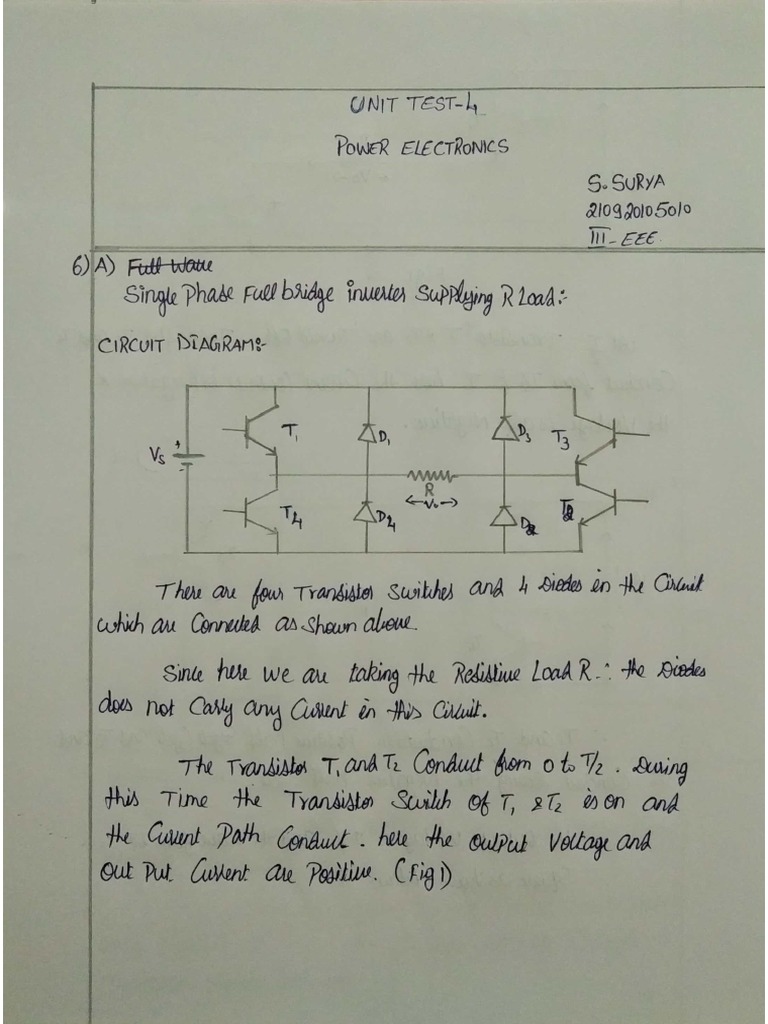 UNIT TEST-4
POWER ELECTRONICS
S. SURYA
210920105010
III - EEE.
6) A) Full Wave
Single Phase Full bridge inverter Supplying R Load:-
CIRCUIT DIAGRAM:-
T1
D1
D3
T3
Vs
+
-
R
Vo
T4
D4
D2
T2
There are four Transistor Switches and 4 Diodes in the Circuit
which are Connected as Shown above.
Since here we are taking the Resistive Load R ∴ the Diodes
does not Carry any Current in this Circuit.
The Transistor T1 and T2 Conduct from 0 to T/2. During
this Time the Transistor Switch of T1 & T2 is on and
the Current Path Conduct. here the output Voltage and
Out Put Current are Positive. (Fig 1)